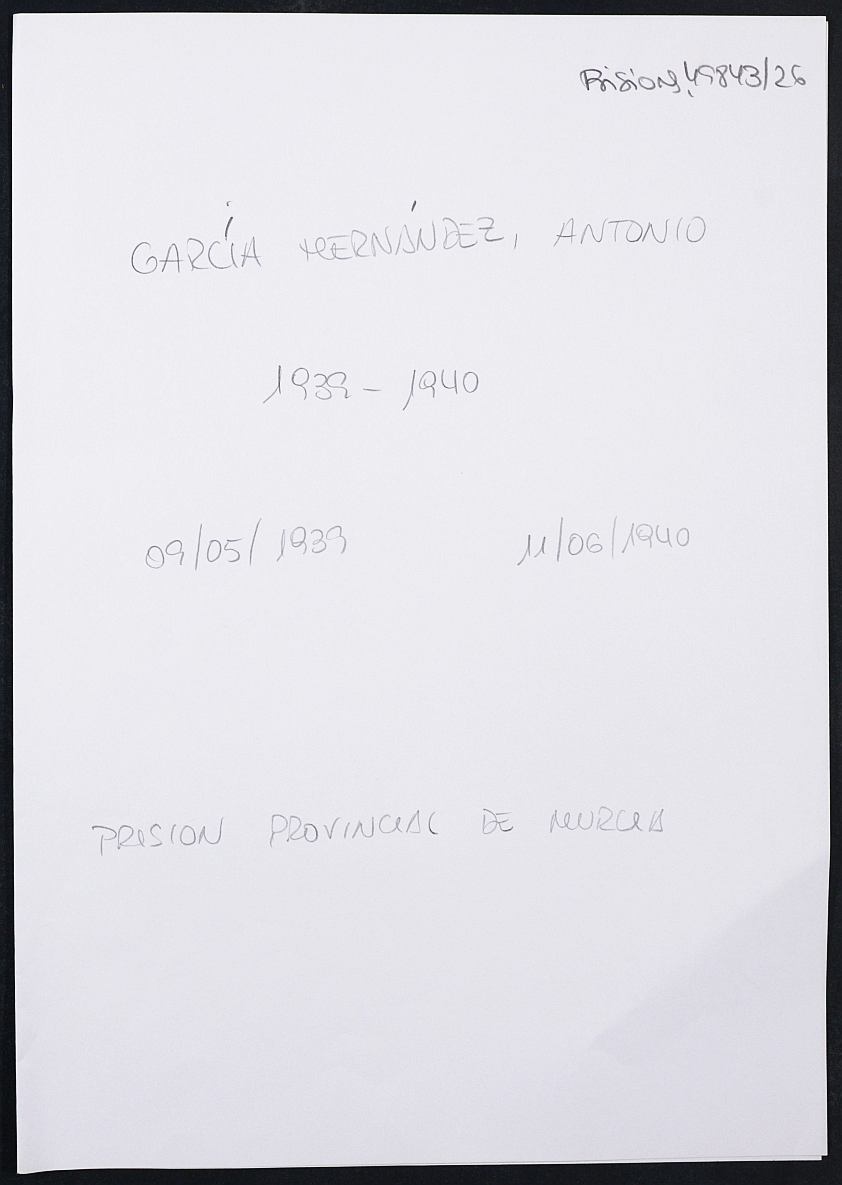 Prisiones, 49843/26
GARCÍA HERNÁNDEZ, ANTONIO
1939 - 1940
09/05/1939 11/06/1940
PRISION PROVINCIAL DE MURCIA